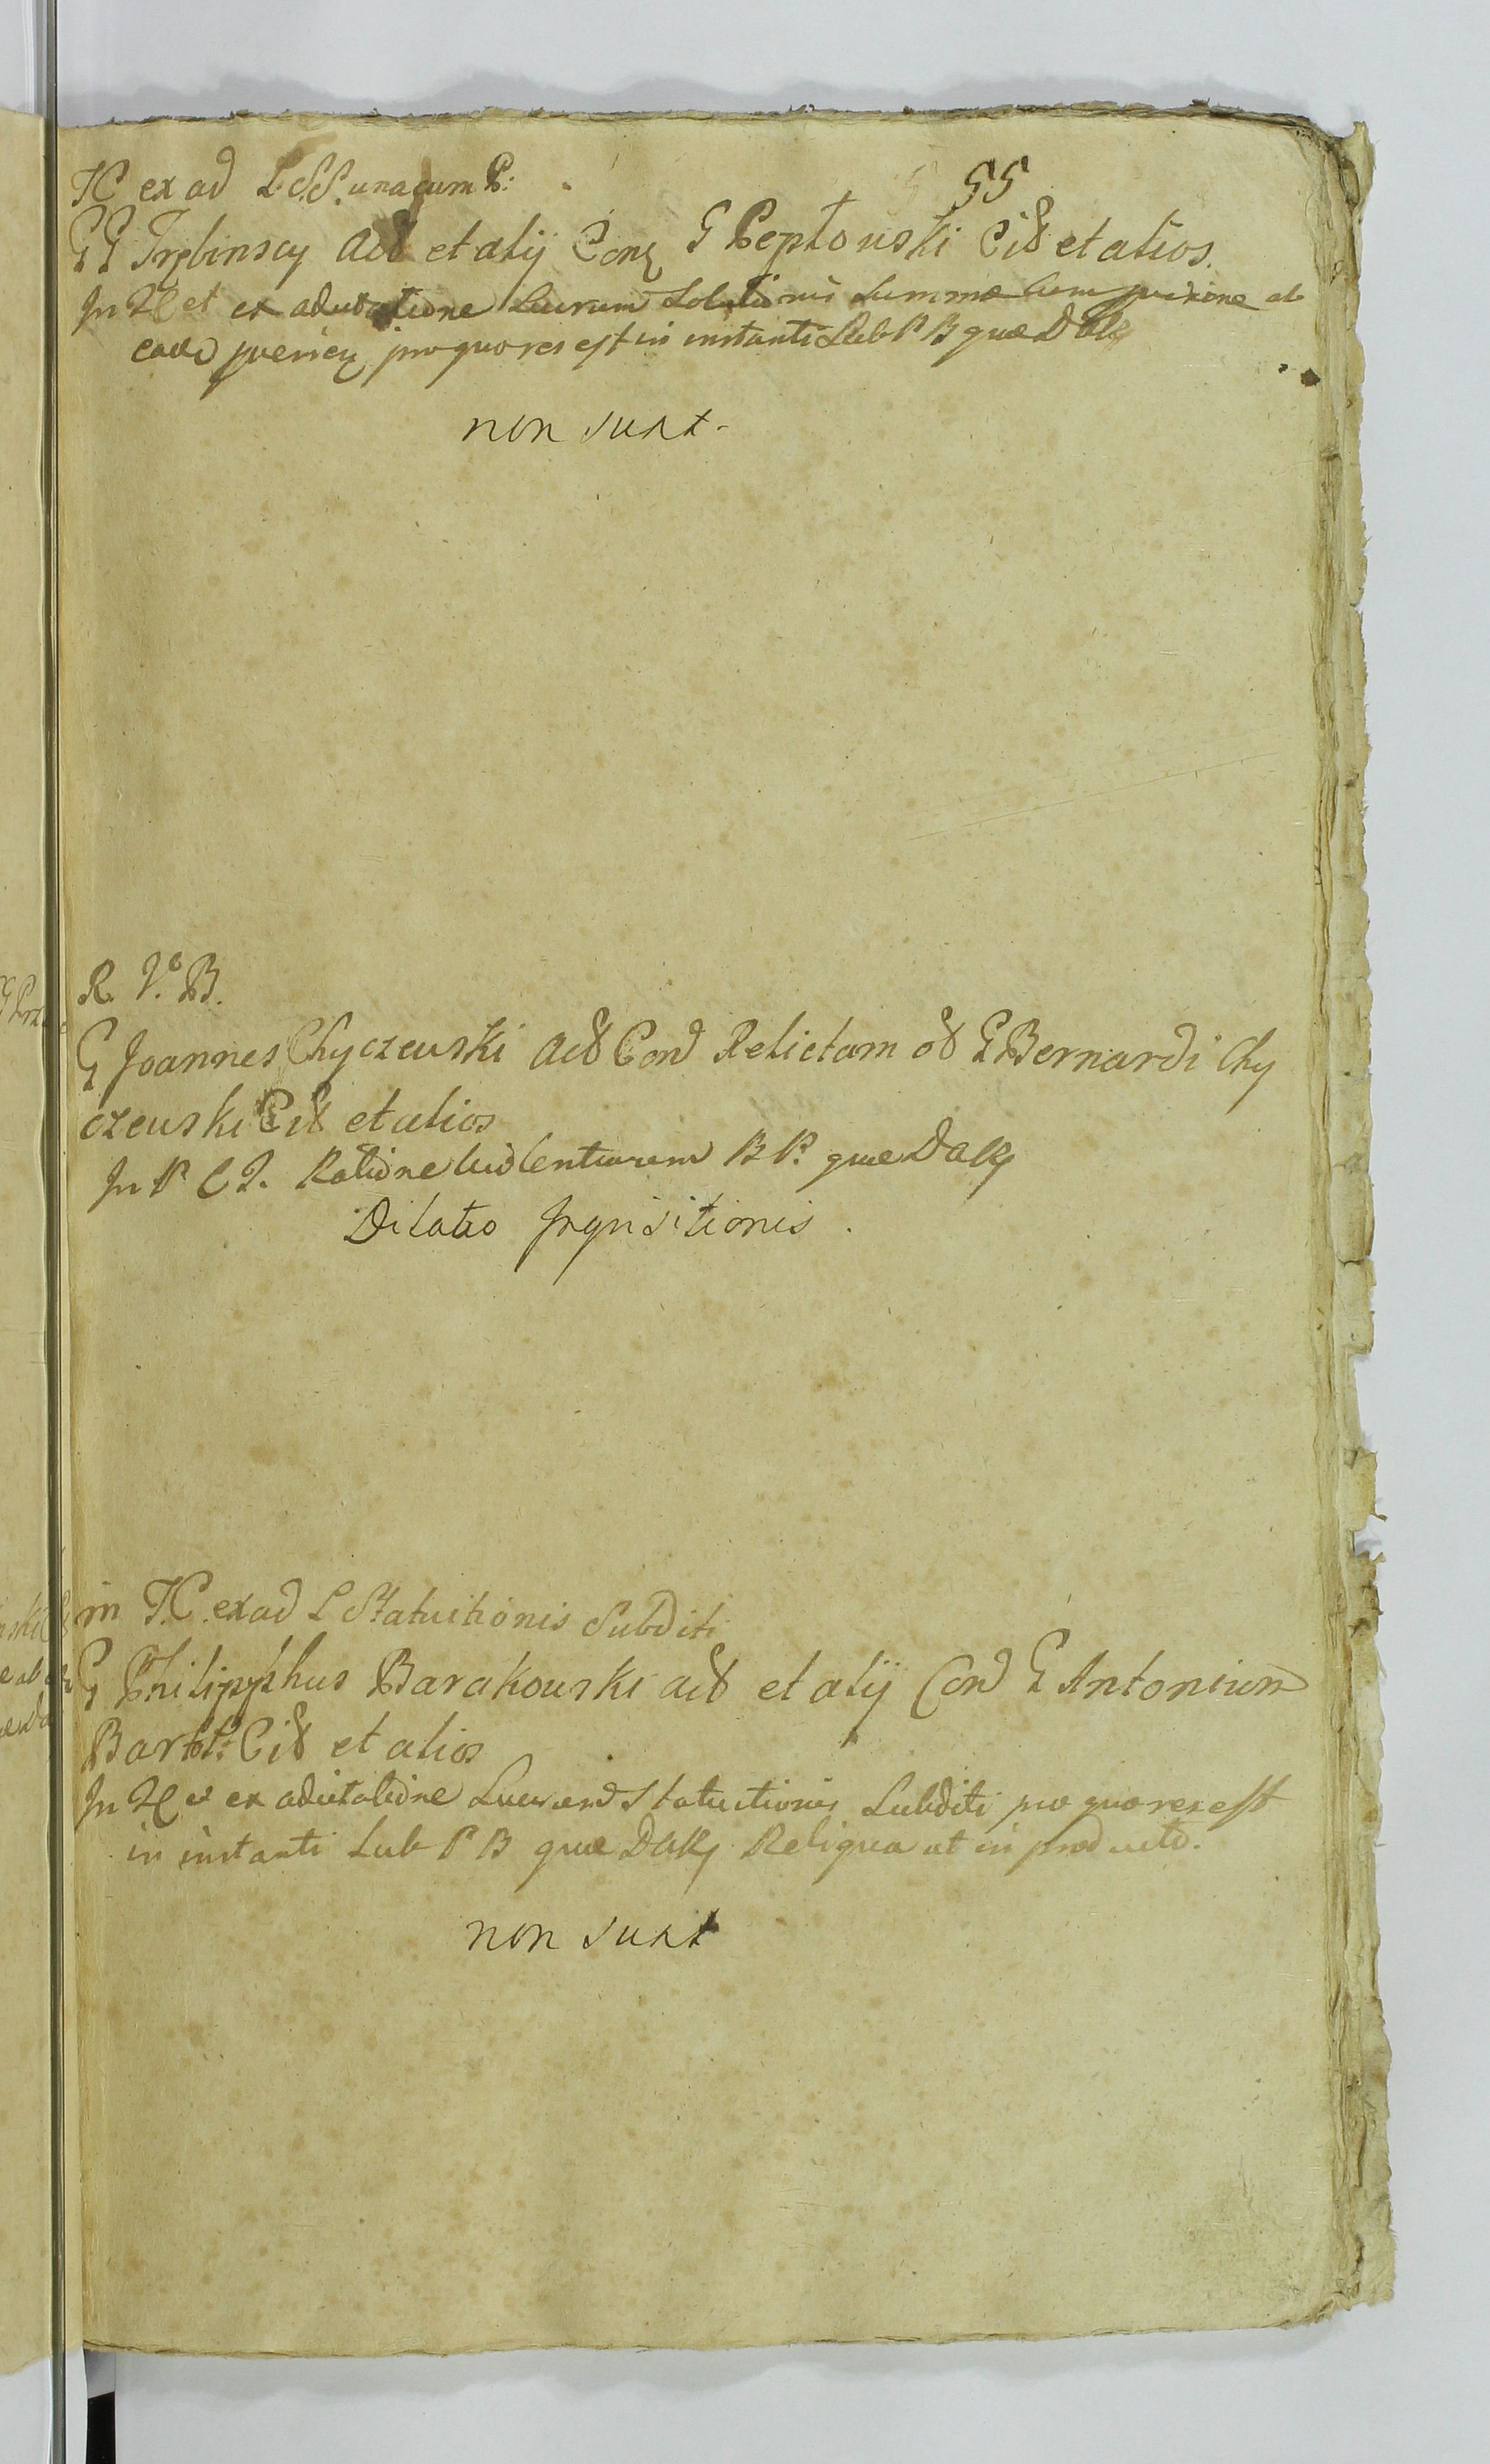 55
TC ex ad L S.S. unacum P:
GG Trębinscy Act et alij Con G Peptowski Cit et alios.
In TC et ex adcitatione Lucrum Solutionis Summæ cum provisione ab
eade proven pro quo res est in instanti Sub P B quæ D
non sunt.
R. V.º B.
G Joannes Chyczewski Act Con Relictam G Bernardi Chy
czewski Cit et alios
In P C I. Ratione B P. quæ D
Dilatio Inqnisitionis.
in TC ex ad L Statuitionis Subditi
G Philipphus Barakowski act et alij Con G Antonium
Bart: Cit et alios
In TC et ex adcitatione Lucrum Statuitionis Subditi pro quo res est
in instanti Sub P B quæ D Reliqua ut in producto.
non sunt